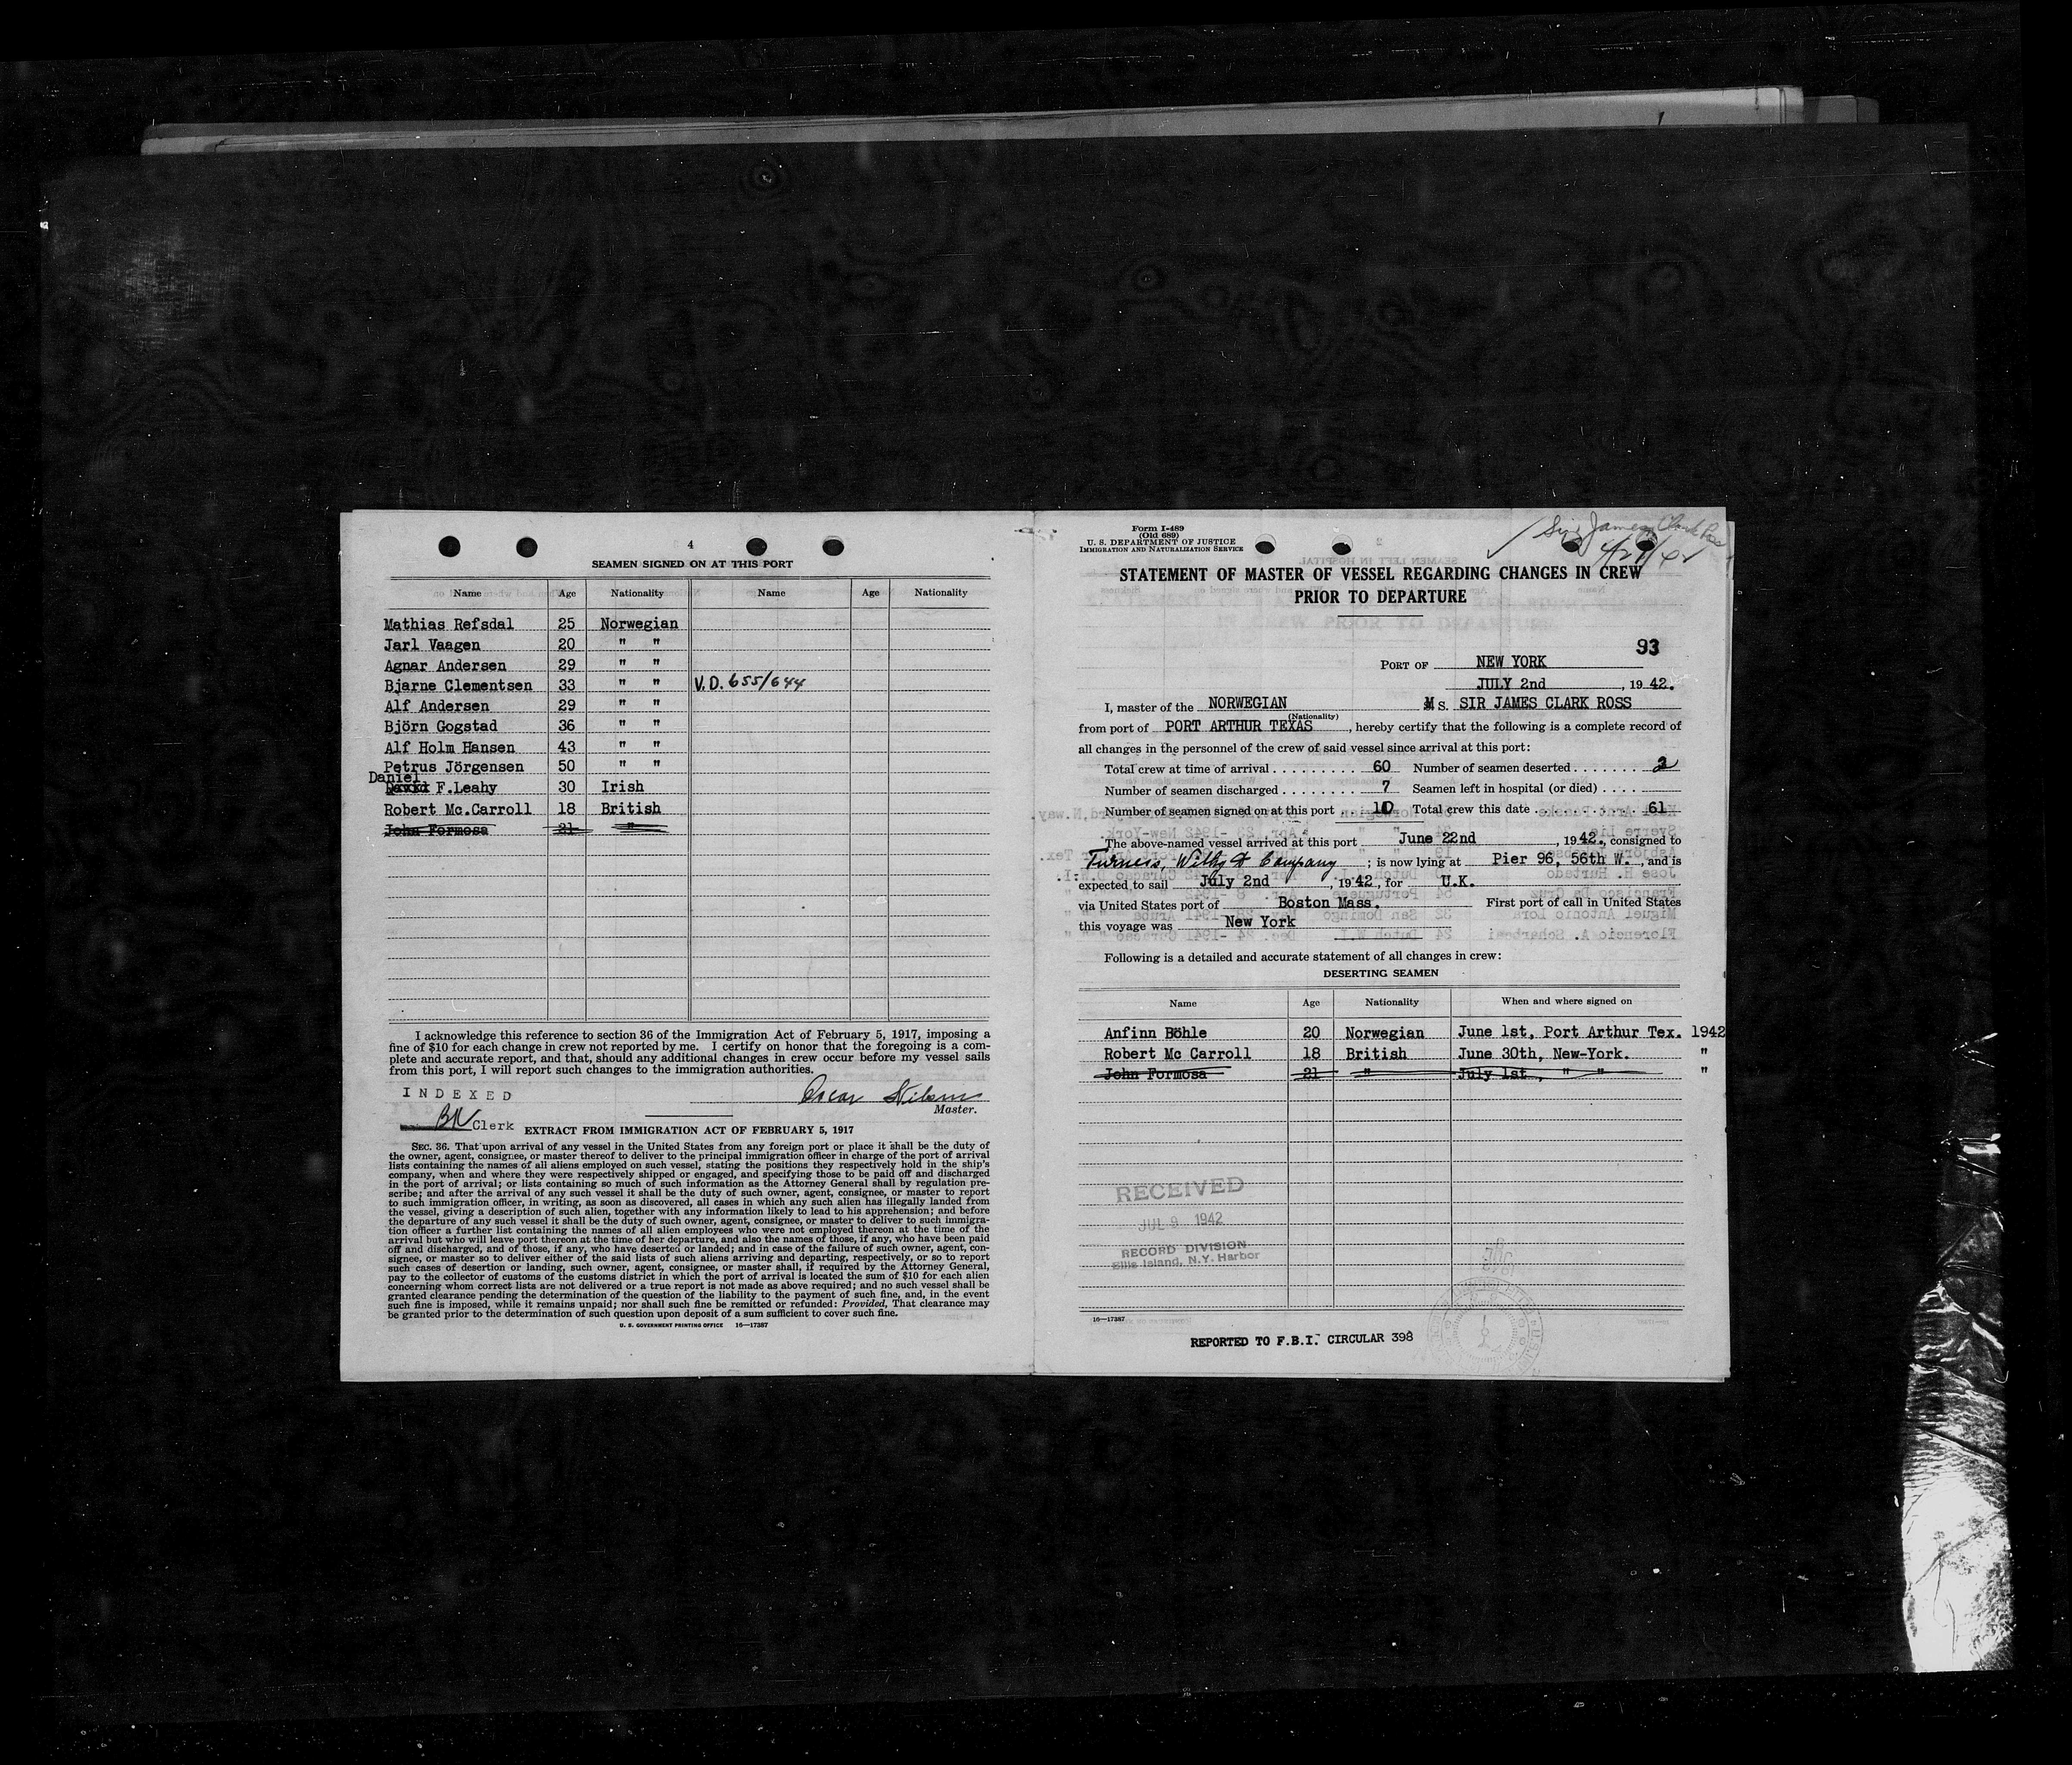 4
SEAMEN SIGNED ON AT THIS PORT
Name Age Nationality Name Age Nationality
Mathias Refsdal 25 Norwegian
Jarl Vaagen 20 " "
Agnar Andersen 29 " "
Bjarne Clementsen 33 " " V.D. 655/644
Alf Andersen 29 " "
Björn Gogstad 36 " "
Alf Holm Hansen 43 " "
Petrus Jörgensen 50 " "
Daniel
David F.Leahy 30 Irish
Robert Mc.Carroll 18 British
John Formosa 21 "
I acknowledge this reference to section 36 of the Immigration Act of February 5, 1917, imposing a
fine of $10 for each change in crew not reported by me. I certify on honor that the foregoing is a com-
plete and accurate report, and that, should any additional changes in crew occur before my vessel sails
from this port, I will report such changes to the immigration authorities.
INDEXED
Oscar Nilsen
Master.
Clerk
EXTRACT FROM IMMIGRATION ACT OF FEBRUARY 5, 1917
SEC. 36. That upon arrival of any vessel in the United States from any foreign port or place it shall be the duty of
the owner, agent, consignee, or master thereof to deliver to the principal immigration officer in charge of the port of arrival
lists containing the names of all aliens employed on such vessel, stating the positions they respectively hold in the ship's
company, when and where they were respectively shipped or engaged, and specifying those to be paid off and discharged
in the port of arrival; or lists containing so much of such information as the Attorney General shall by regulation pre-
scribe; and after the arrival of any such vessel it shall be the duty of such owner, agent, consignee, or master to report
to such immigration officer, in writing, as soon as discovered, all cases in which any such alien has illegally landed from
the vessel, giving a description of such alien, together with any information likely to lead to his apprehension; and before
the departure of any such vessel it shall be the duty of such owner, agent, consignee, or master to deliver to such immigra-
tion officer a further list containing the names of all alien employees who were not employed thereon at the time of the
arrival but who will leave port thereon at the time of her departure, and also the names of those, if any, who have been paid
off and discharged, and of those, if any, who have deserted or landed; and in case of the failure of such owner, agent, con-
signee, or master so to deliver either of the said lists of such aliens arriving and departing, respectively, or so to report
such cases of desertion or landing, such owner, agent, consignee, or master shall, if required by the Attorney General,
pay to the collector of customs of the customs district in which the port of arrival is located the sum of $10 for each alien
concerning whom correct lists are not delivered or a true report is not made as above required; and no such vessel shall be
granted clearance pending the determination of the question of the liability to the payment of such fine, and, in the event
such fine is imposed, while it remains unpaid; nor shall such fine be remitted or refunded: Provided, That clearance may
be granted prior to the determination of such question upon deposit of a sum sufficient to cover such fine.
U. S. GOVERNMENT PRINTING OFFICE 16—17387
Form I-489
(Old 689)
U. S. DEPARTMENT OF JUSTICE
IMMIGRATION AND NATURALIZATION SERVICE
Sir James Clark Ross
STATEMENT OF MASTER OF VESSEL REGARDING CHANGES IN CREW
PRIOR TO DEPARTURE
93
PORT OF NEW YORK
JULY 2nd, 1942.
I, master of the NORWEGIAN M S. SIR JAMES CLARK ROSS
(Nationality)
from port of PORT ARTHUR TEXAS, hereby certify that the following is a complete record of
all changes in the personnel of the crew of said vessel since arrival at this port:
Total crew at time of arrival . . . . . . . . . . 60 Number of seamen deserted . . . . . . . 2
Number of seamen discharged . . . . . . . . 7 Seamen left in hospital (or died) . . . .
Number of seamen signed on at this port . . 10 Total crew this date . . . . . . . . . . 61
The above-named vessel arrived at this port June 22nd, 1942., consigned to
Furness, Withy & Company; is now lying at Pier 96, 56th W., and is
expected to sail July 2nd, 1942, for U.K.
via United States port of Boston Mass. First port of call in United States
this voyage was New York
Following is a detailed and accurate statement of all changes in crew:
DESERTING SEAMEN
Name Age Nationality When and where signed on
Anfinn Böhle 20 Norwegian June 1st, Port Arthur Tex. 1942
Robert Mc Carroll 18 British June 30th, New-York. "
John Formosa 21 " July 1st, " " "
RECEIVED
JUL 9 1942
RECORD DIVISION
Ellis Island, N.Y. Harbor
16—17387
REPORTED TO F.B.I. CIRCULAR 398